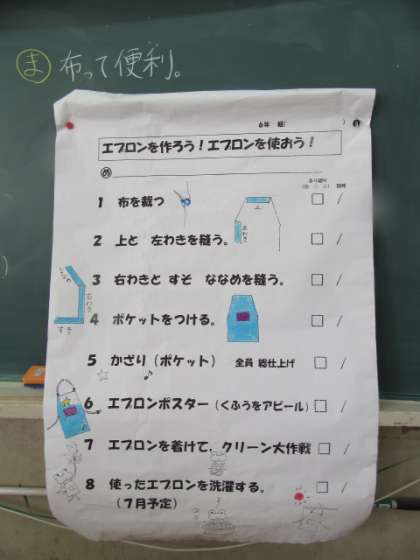 ま 布って便利。
6年 組(          )
エプロンを作ろう!エプロンを使おう!
め
1 布を裁つ
上
左わき
2 上と 左わきを縫う。
3 右わきと すそ ななめを縫う。
ななめ
右わき
すそ
4 ポケットをつける。
5 かざり(ポケット) 全員 総仕上げ
6 エプロンポスター(くふうをアピール)
7 エプロンを着けて,クリーン大作戦
8 使ったエプロンを洗濯する。
(7月予定)